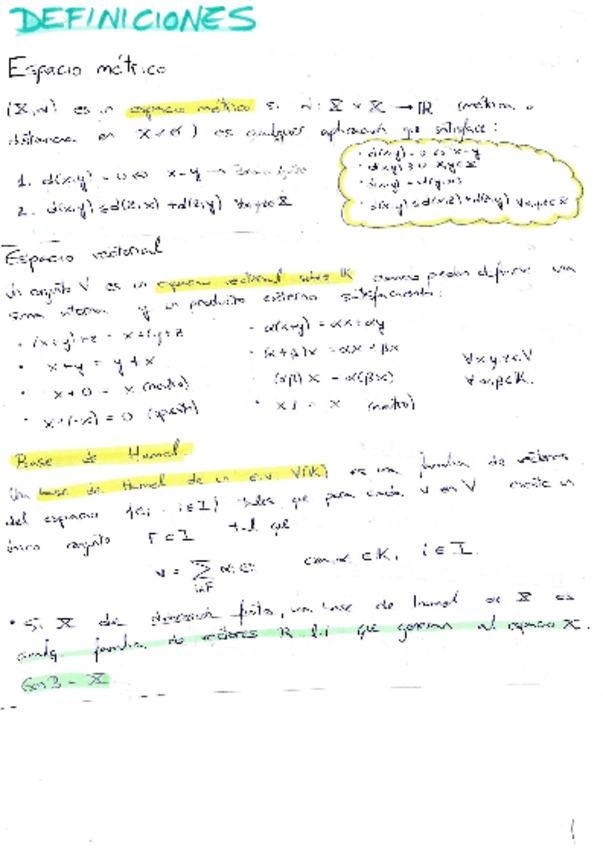 DEFINICIONES
Espacio métrico
(X,d) es un espacio métrico si d: X × X → ℝ (métrica o
distancia en X) es cualquier aplicación que satisface:
1. d(x,y) = 0 ⇔ x = y
2. d(x,y) ≤ d(z,x) + d(z,y) ∀x,y,z ∈ X
· d(x,y) = 0 ⇔ x = y
· d(x,y) ≥ 0 x,y ∈ X
· d(x,y) = d(y,x)
· d(x,y) ≤ d(x,z) + d(z,y) ∀x,y,z ∈ X
Espacio vectorial
Un conjunto V es un espacio vectorial sobre K cuando pueden definirse una
suma interna y un producto externo satisfaciendo:
· (x+y)+z = x+(y+z
· x+y = y+x
· x+0 = x (neutro)
· x+(-x) = 0 (opuesto)
· α(x+y) = αx+αy
· (α+β)x = αx+βx
· (αβ)x = α(βx)
· x1 = x (neutro)
∀x,y,z ∈ V
∀α,β ∈ K.
Base de Hamel.
Una base de Hamel de un e.v. V(K) es una familia de vectores
del espacio {ei : i ∈ I} tales que para cada v en V existe un
único conjunto F ⊂ I tal que
v = Σ i∈F αi ei con αi ∈ K, i ∈ I.
· Si X de dimensión finita, una base de Hamel de X es
familia de vectores l.i que generan al espacio X.
= X